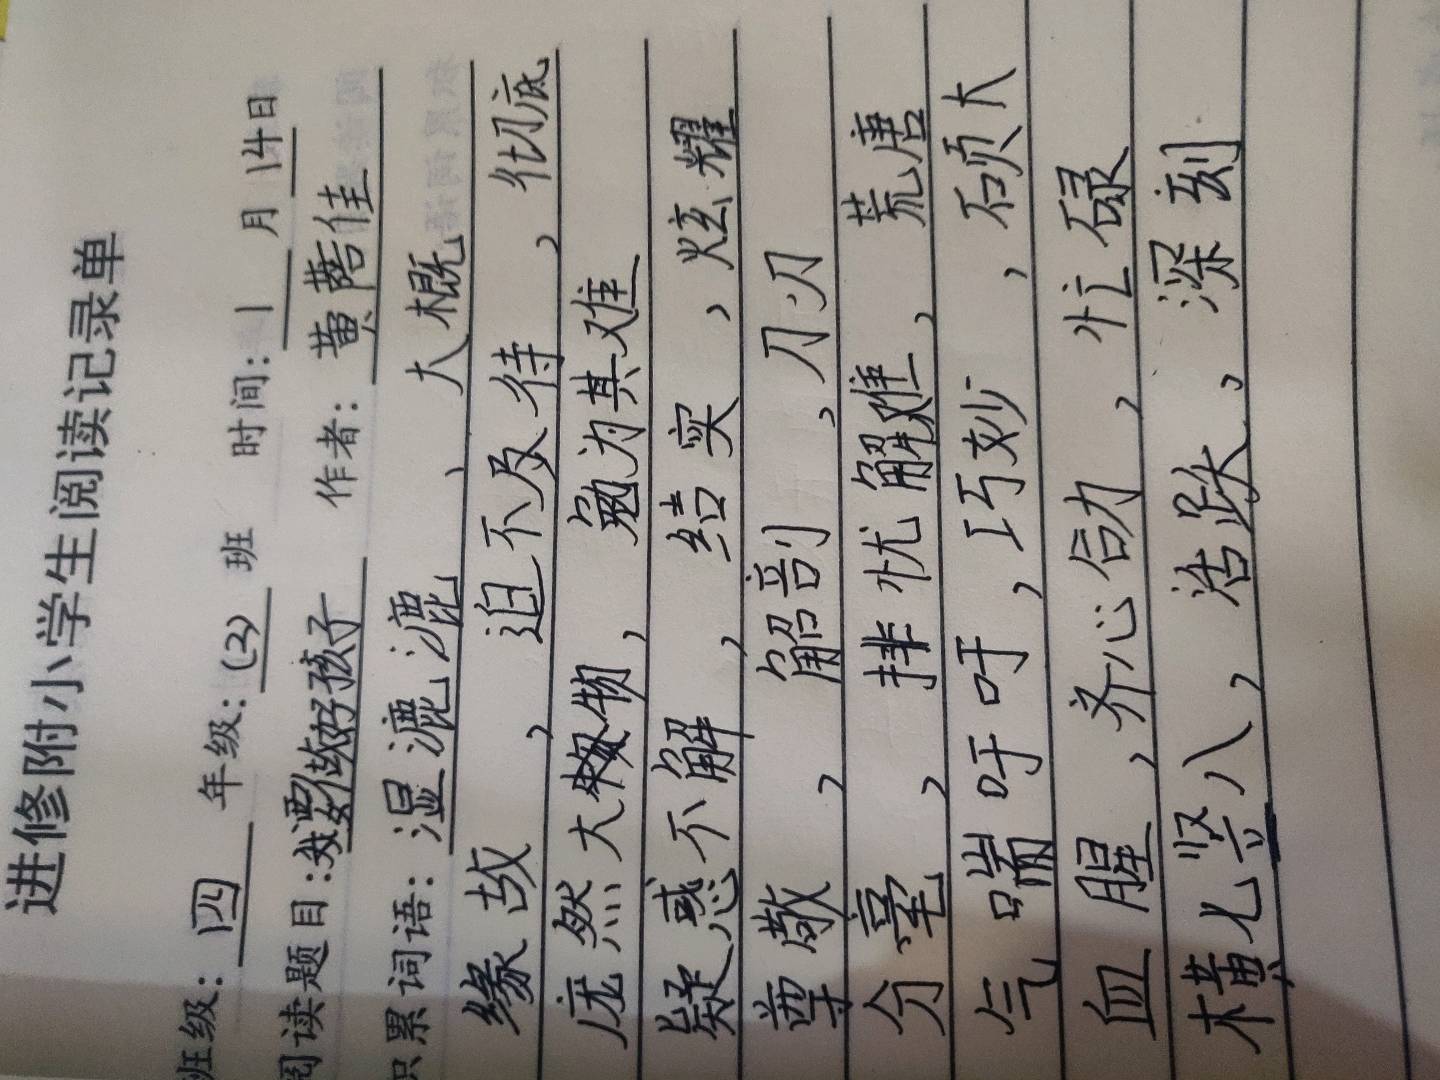 进修附小学生阅读记录单
班级：四 年级：(2) 班 时间：1 月 14日
阅读题目：要做好孩子 作者：黄蓓佳
积累词语：湿漉漉、大概
缘故，迫不及待，彻底
庞然大物，勉为其难
疑惑不解，结实，炫耀
尊敬，解剖，刀刃
分毫，排忧解难，荒唐
气喘吁吁，巧妙，硕大
血腥，齐心合力，忙碌
横七竖八，活跃。深刻